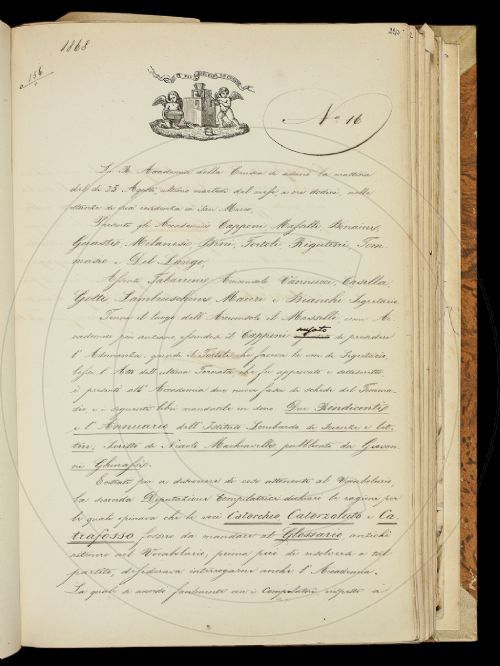 1868
240
136
Nº 16
La R. Accademia della Crusca si adunò la mattina
del dì 25 Agosto, ultimo martedì del mese, a ore dodici, nella
stanza di sua residenza in San Marco.
Presenti gli Accademici Capponi, Masselli, Bonaini,
Guasti, Milanesi, Brini, Tortoli, Rigutini, Tom
maseo e Del Lungo,
Assenti Tabarrini, Arcangeli, Vannucci, Casella,
Gotti, Lambruschini, Maccri e Bianchi Segretario.
Tenne il luogo dell'Arciconsolo il Masselli, come Ac
cademico più anziano, essendosi il Capponi scusato di prendere
l'Adunanza, quando il Tortoli, che faceva le veci di Segretario,
lesse l'Atto dell'ultima Tornata che fu approvato e sottoscritto
è presentò all'Accademia due nuovi fasci di schede del Tomma
séo e i seguenti libri mandatile in dono: Due Rendiconti
e l'Annuario dell'Istituto Lombardo di Scienze e Let
tere; Scritti di Niccolò Machiavelli pubblicati da Giovan
ni Ghinassi.
Entrati poi a discorrere di cose attenenti al Vocabolario,
la seconda Deputazione Compilatrice dichiarò le ragioni per
le quali opinava che le voci Catorchio, Catorzoluto e Ca
trafosso fossero da mandare al Glossario anziché
restare nel Vocabolario, prima però di risolversi a tal
partito, desiderava interrogarne anche l'Accademia.
La quale si accordò facilmente con i Compilatori rispetto a